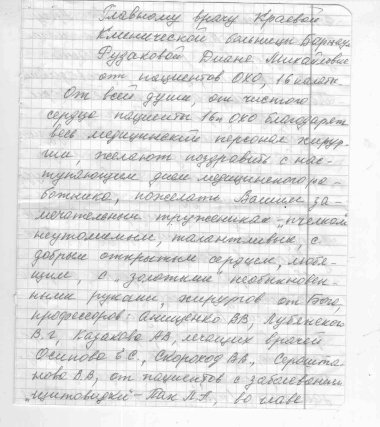 Главному врачу Краевой
Клинической больницы
Рузаковой Диане Михайловне
от пациентов ОХО, 16 палаты
От всей души, от чистого
сердца пациенты 16п ОХО благодарят
весь медицинский персонал хирур-
гии, желают поздравить с нас-
тупающим днем медицинского ра-
ботника, пожелать Вашим за-
мечательным труженикам "пчелкам"
неутомимым, талантливым, с
добрым открытым сердцем, любя-
щим, с "золотыми" необыкновен-
ными руками, хирургов от Бога,
профессоров: Анищенко ВВ, Лубянского
В.Г., Казакова АВ, лечащих врачей
Осипова Е.С., Скороход В.В.,
В.В., от пациентов с заболеванием
"щитовидки" - Пак Л.А., во главе